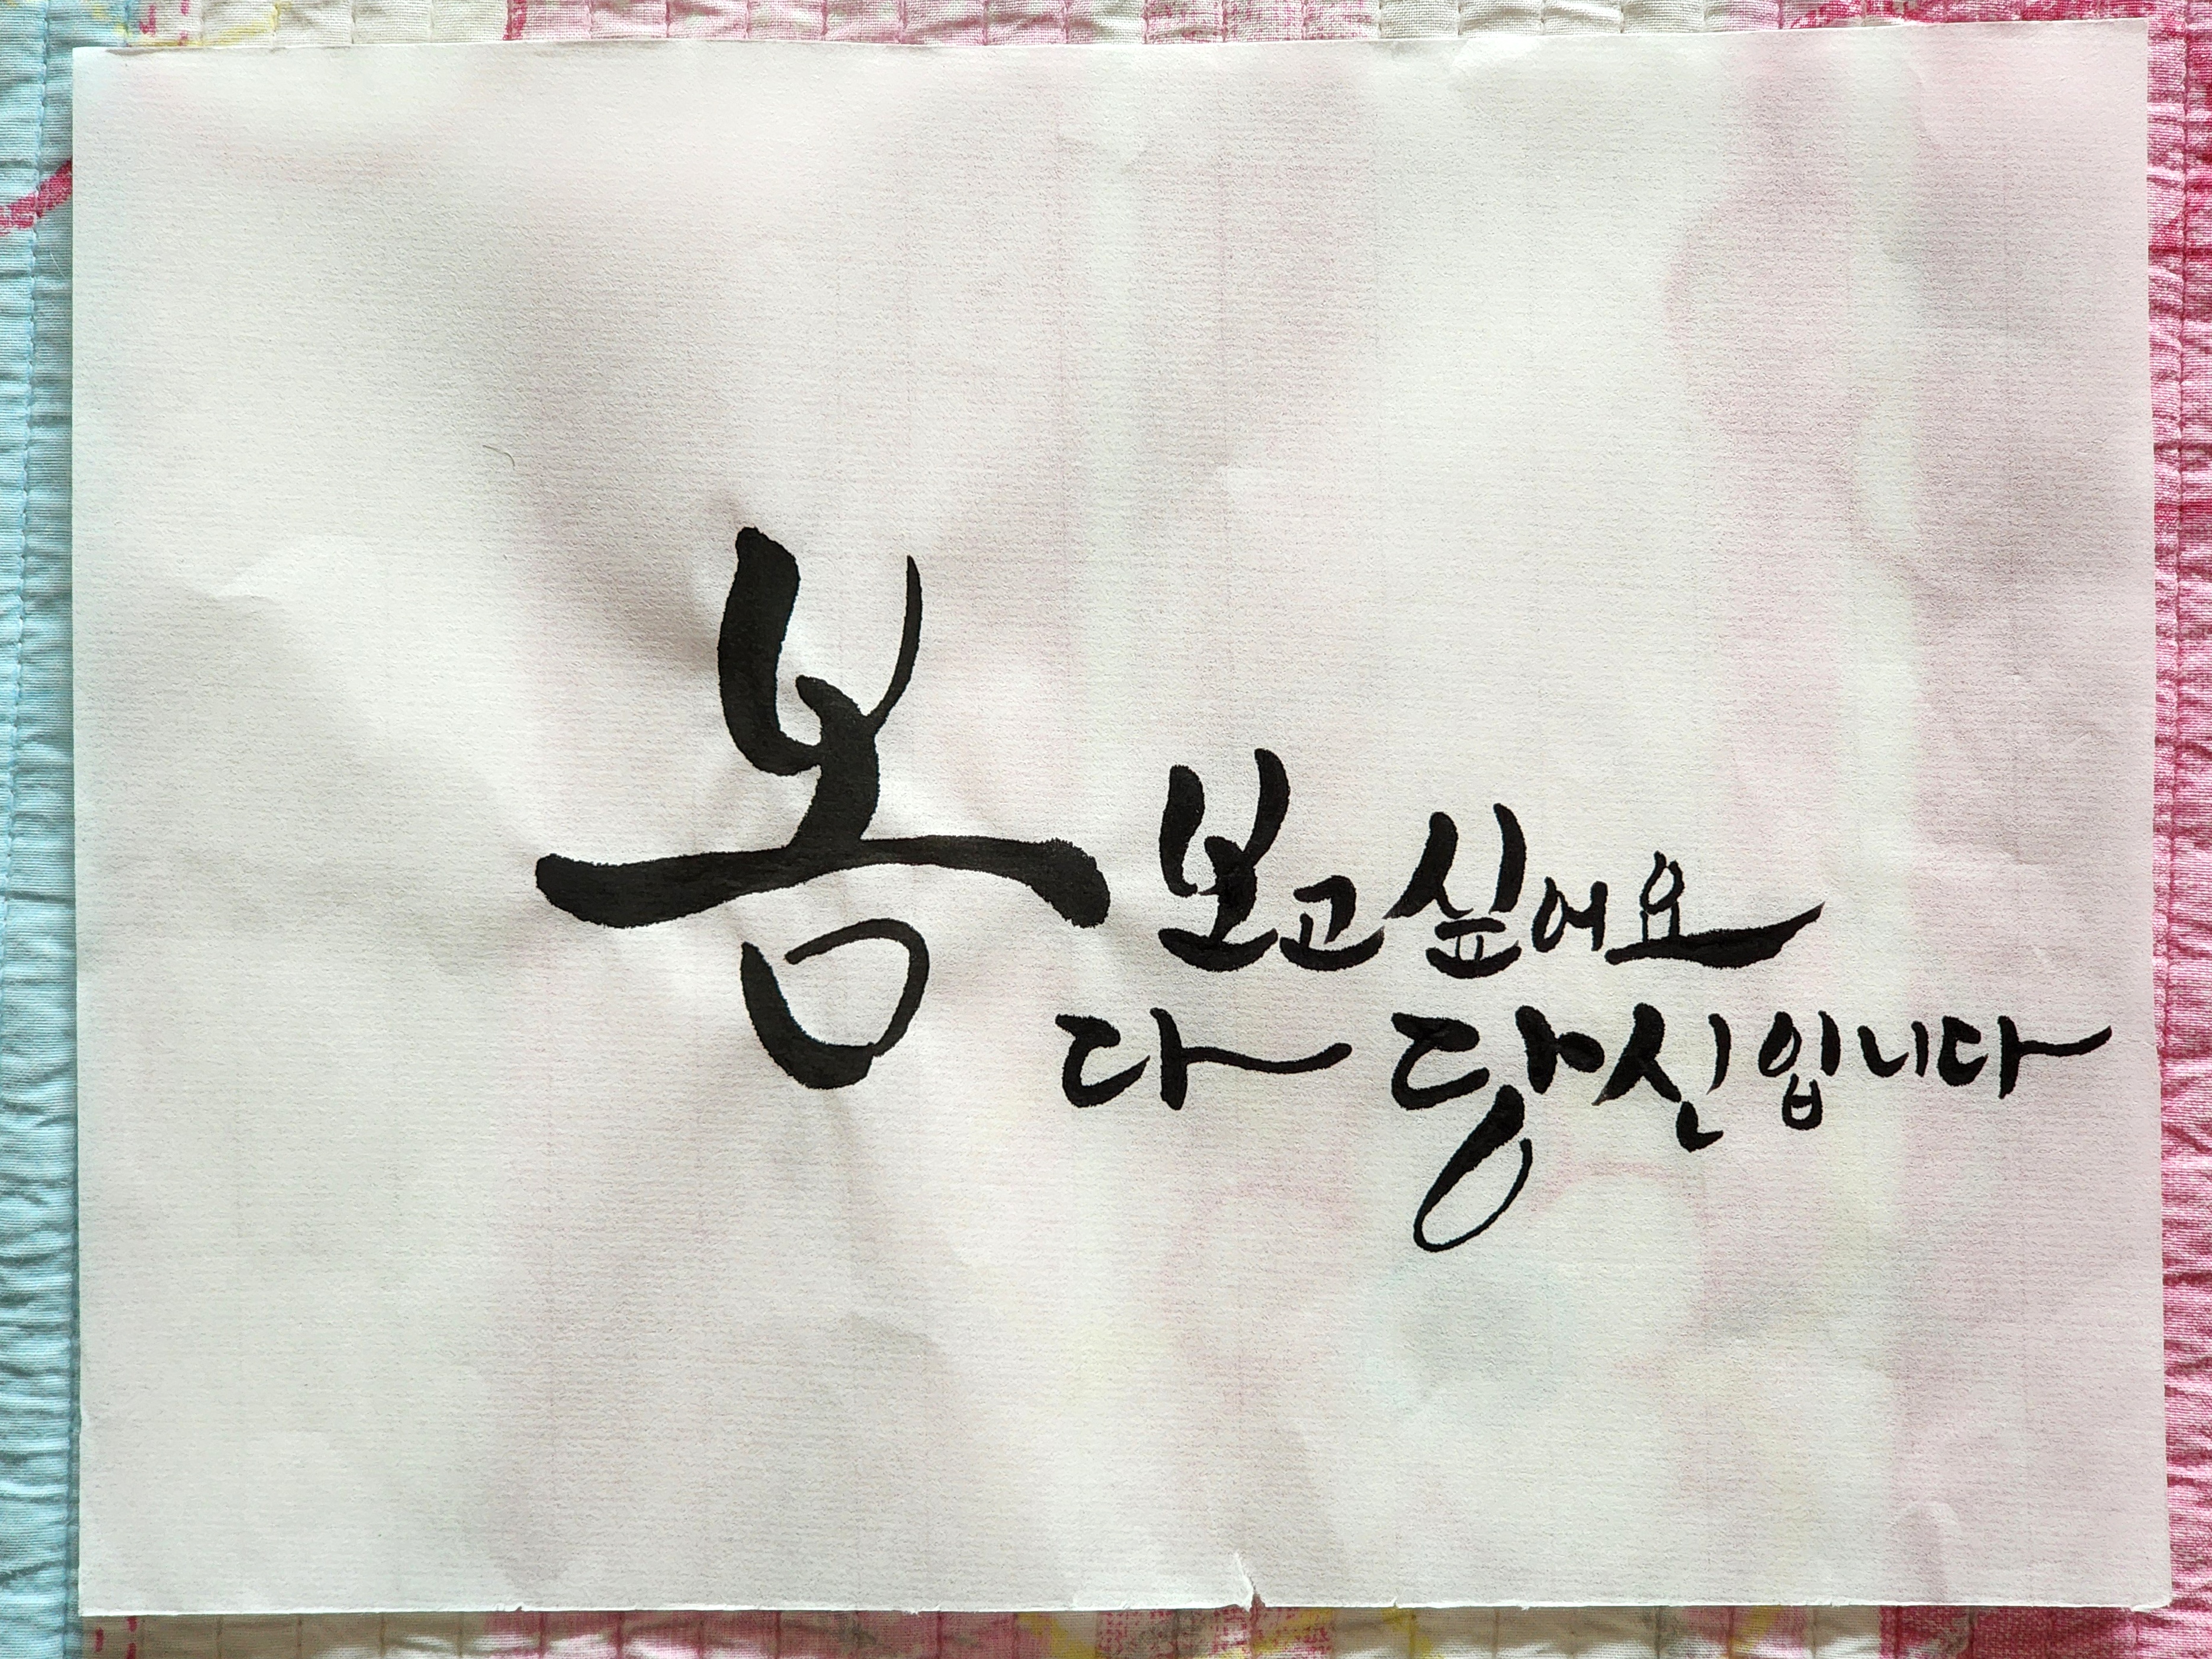 봄
보고싶어요
다 당신입니다